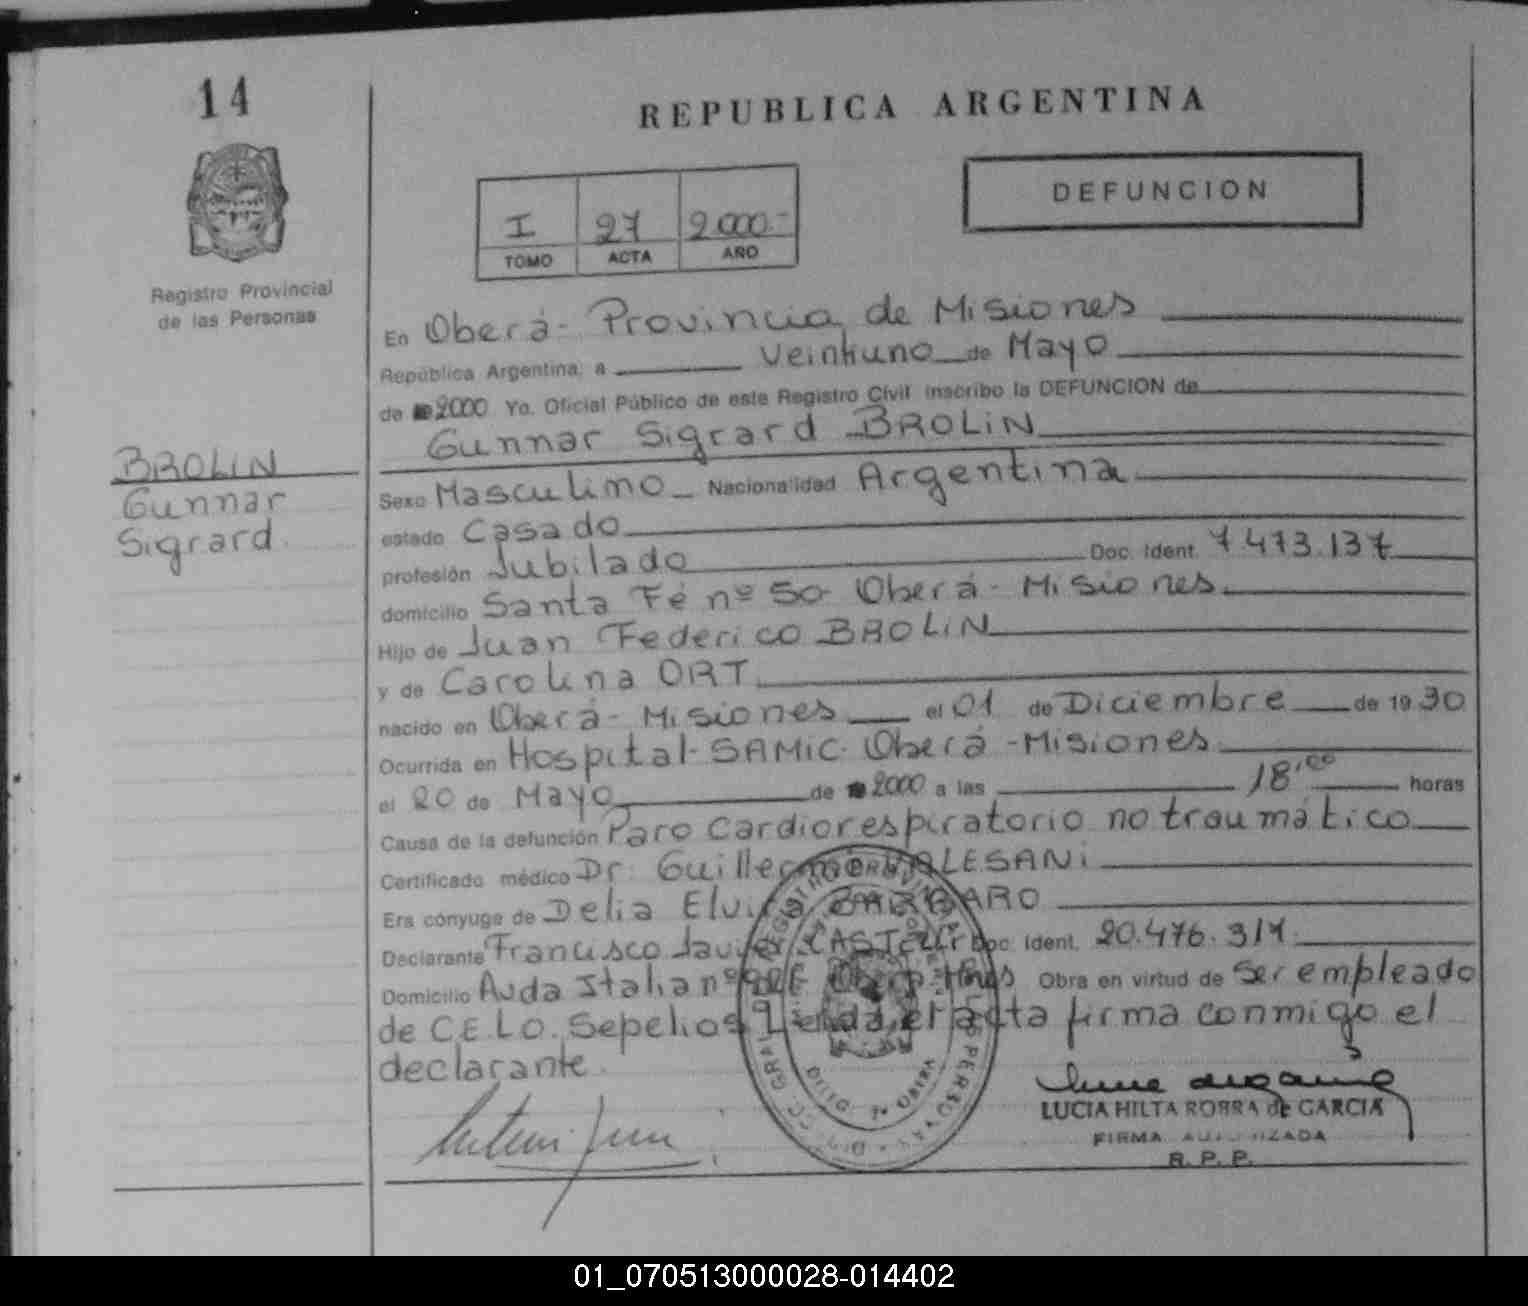 14
REPUBLICA ARGENTINA
DEFUNCION
I 27 2.000.-
TOMO ACTA AÑO
Registro Provincial
de las Personas
En Oberá - Provincia de Misiones
República Argentina, a veintiuno de Mayo
de 2000 Yo, Oficial Público de este Registro Civil inscribo la DEFUNCION de
Gunnar Sigrard BROLIN
BROLIN
Gunnar
Sigrard.
Sexo Masculino Nacionalidad Argentina
estado Casado
profesión Jubilado Doc. Ident. 7.473.137
domicilio Santa Fé nº 50- Oberá - Misiones.
Hijo de Juan Federico BROLIN
y de Carolina ORT
nacido en Oberá - Misiones el 01 de Diciembre de 1930
Ocurrida en Hospital - SAMIC - Oberá - Misiones
el 20 de Mayo de 2000 a las 18,00 horas
Causa de la defunción Paro Cardiorespiratorio no traumático
Certificado médico Dr. Guillermo VALESANI
Era cónyuge de Delia Elvira BARBARO
Declarante Francisco Javier Doc. Ident. 20.476.314
Domicilio Avda Italia nº Obra en virtud de Ser empleado
de C.E.L.O. Sepelios, Leída el acta firma conmigo el
declarante.
LUCIA HILTA ROBRA de GARCIA
FIRMA AUTORIZADA
R. P. P.
01_070513000028-014402